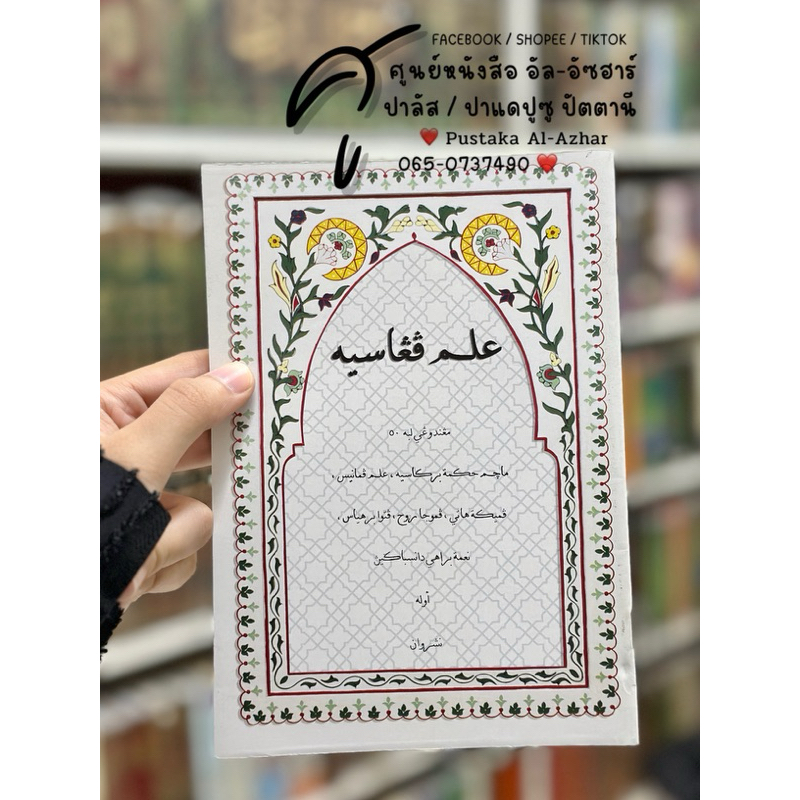 FACEBOOK / SHOPEE / TIKTOK
ศูนย์หนังสือ อัล-อัซฮาร์
ปาลัส / ปาแดปูซู ปัตตานี
Pustaka Al-Azhar
065-0737490
علم ڤڠاسيه
مڠندوڠي لبه ٥٠
ماچم حكمة بركاسيه، علم ڤمانيس،
ڤميكة هاتي، ڤموجا روح، ڤتوا برهياس،
نعمة براهي دان سباڬيڽ
اوله
نشروان